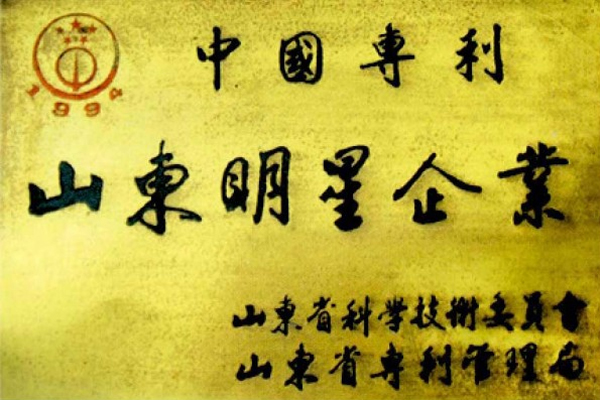 中國專利
山東明星企業
山東省科学技術委員會
山東省专利管理局